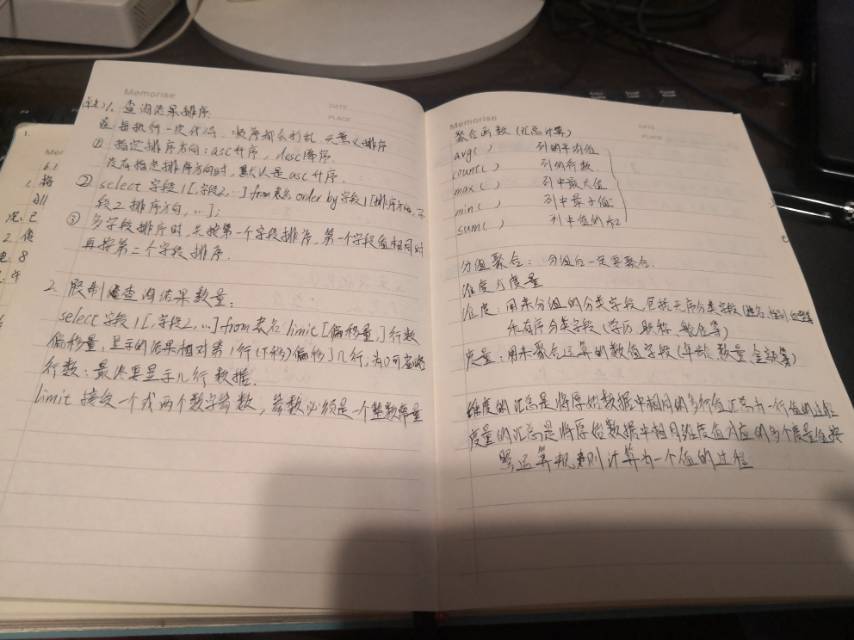 Memorise
DATE
PLACE
1. 查询结果排序
每执行一次代码 顺序都会打乱 无意义排序
① 指定排序方向:asc升序,desc降序.
没有指定排序方向时,默认是asc升序.
② select 字段1[,字段2,…] from 表名 order by 字段1[排序方向,字
段2 排序方向,…];
③ 多字段排序时,先按第一个字段排序,第一个字段值相同时
再按第二个字段排序.
2. 限制查询结果数量.
select 字段1[,字段2,…] from 表名 limit [偏移量,] 行数
偏移量,显示的结果相对第1行(下移)偏移几行,为0可省略
行数:最后要显示几行数据.
limit 接受一个或两个数字参数,参数必须是一个整数常量
Memorise
DATE
PLACE
聚合函数(汇总计算)
avg( ) 列的平均值
count( ) 列的行数
max( ) 列中最大值
min( ) 列中最小值
sum( ) 列中值的和
分组聚合: 分组后一定要聚合.
维度与度量
维度:用来分组的分类字段,包括无序分类字段(姓名 性别
和有序分类字段(学历 职称 等)
度量:用来聚合运算的数值字段(年龄 数量 金额等)
维度的汇总是将原始数据中相同的多行值汇总为一行值的过程
度量的汇总是将原始数据中相同维度值对应的多个度量值按
照运算规则计算为一个值的过程